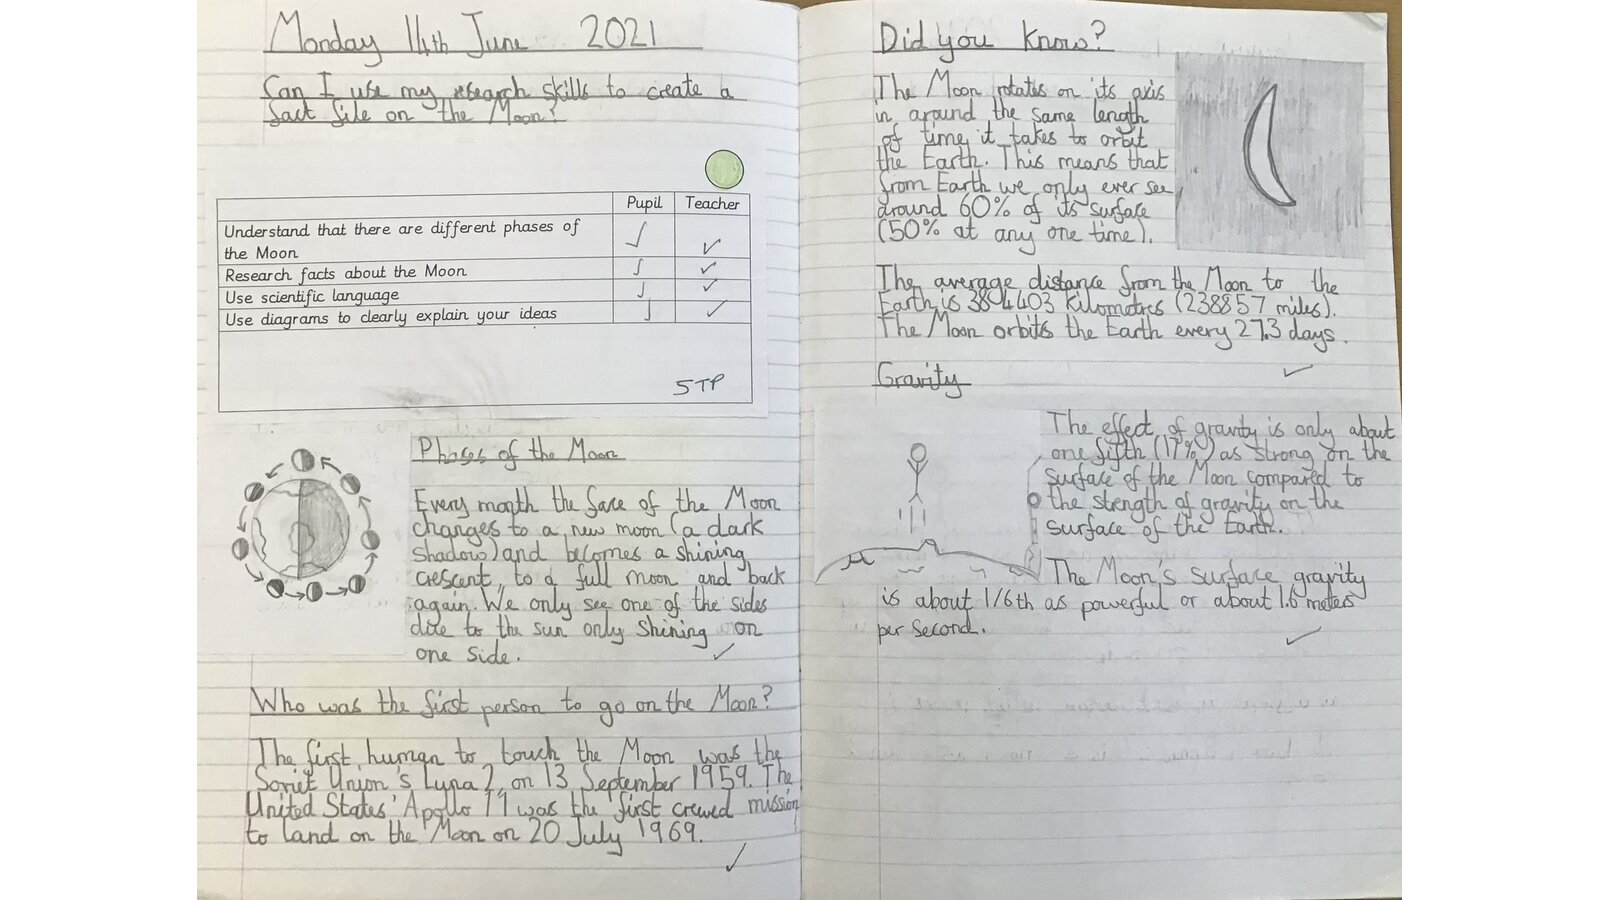 Monday 14th June 2021
Can I use my research skills to create a
fact file on the Moon?
Pupil Teacher
Understand that there are different phases of
the Moon
Research facts about the Moon
Use scientific language
Use diagrams to clearly explain your ideas
STP
Phases of the Moon
Every month the face of the Moon
changes to a new moon (a dark
shadow) and becomes a shining
crescent, to a full moon and back
again. We only see one of the sides
due to the sun only shining on
one side.
Who was the first person to go on the Moon?
The first human to touch the Moon was the
Soviet Union's Luna 2, on 13 September 1959. The
United States' Apollo 11 was the first crewed mission
to land on the Moon on 20 July 1969.
Did you know?
The Moon rotates on its axis
in around the same length
of time it takes to orbit
the Earth. This means that
from Earth we only ever see
around 60% of its surface
(50% at any one time).
The average distance from the Moon to the
Earth is 384403 kilometres (238857 miles).
The Moon orbits the Earth every 27.3 days.
Gravity
The effect of gravity is only about
one fifth (17%) as strong on the
surface of the Moon compared to
the strength of gravity on the
surface of the Earth.
The Moon's surface gravity
is about 1/6th as powerful or about 1.6 meters
per second.